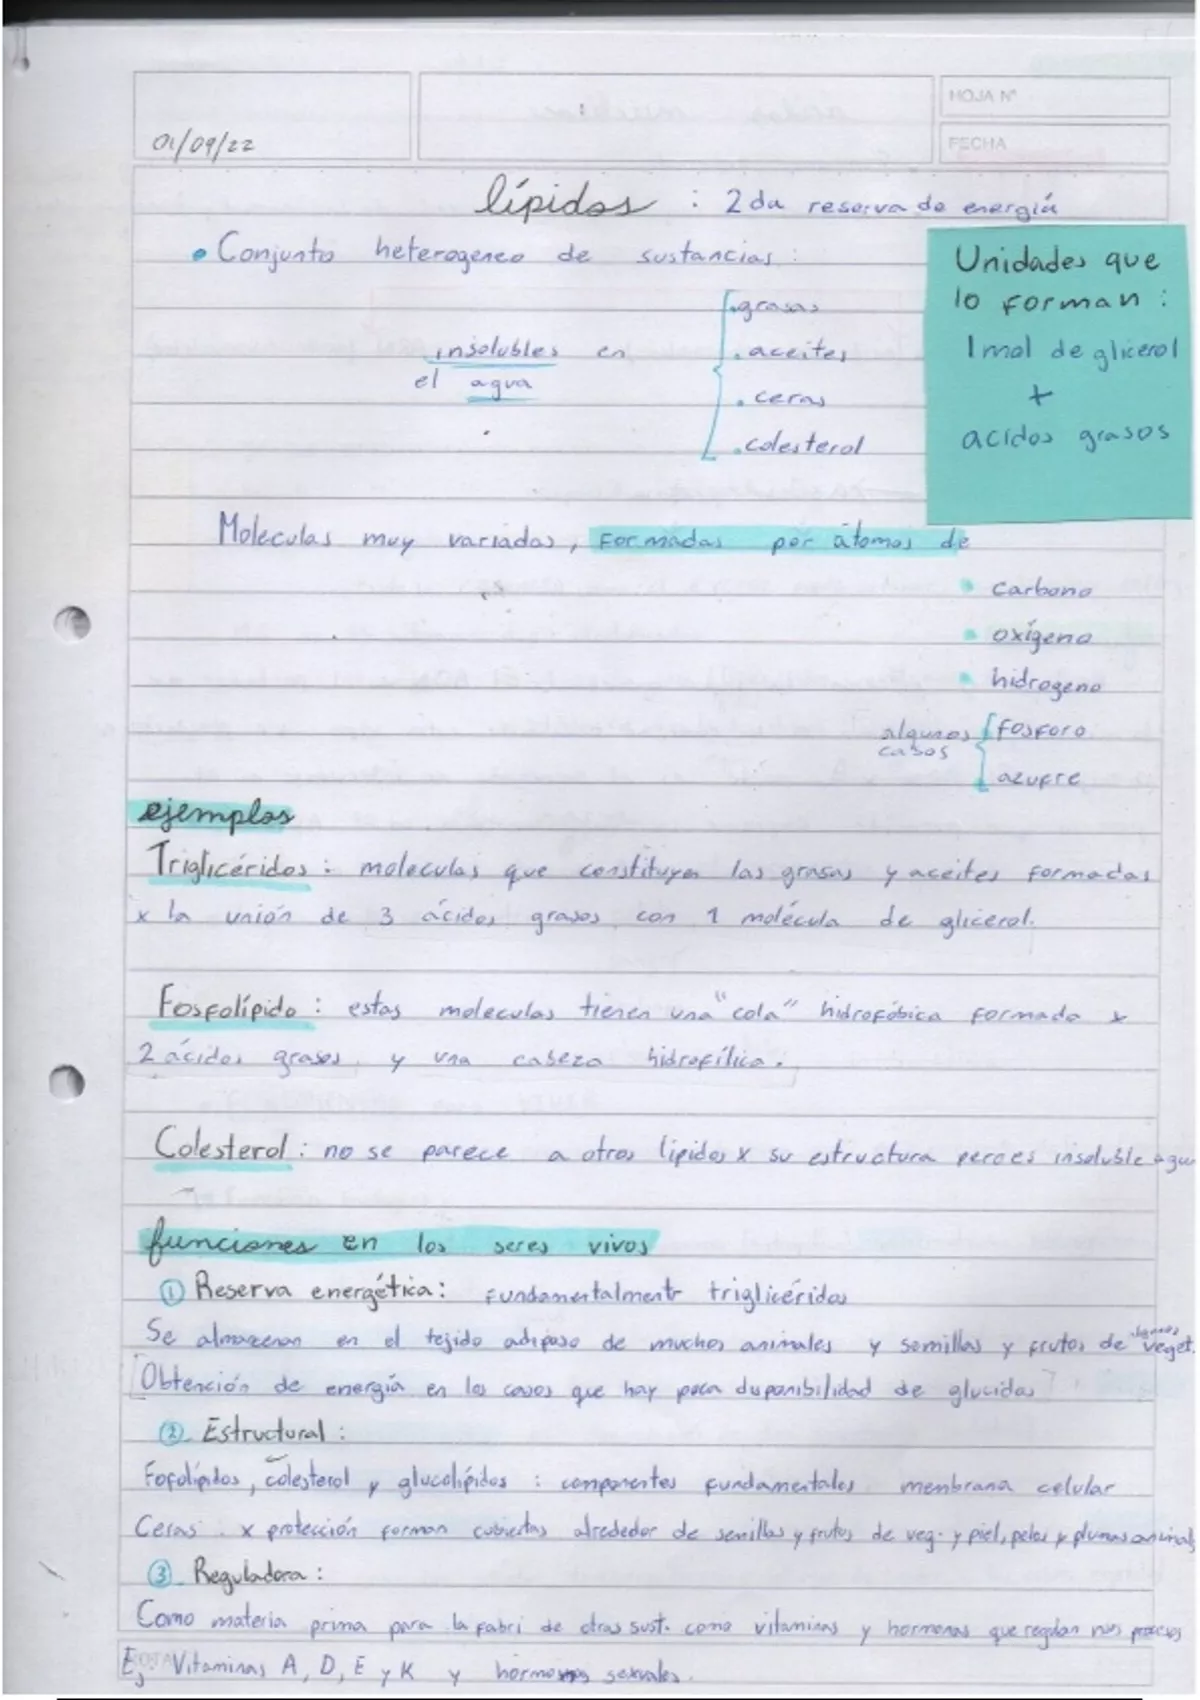 HOJA Nº
01/09/22
FECHA
lípidos : 2da reserva de energía
• Conjunto heterogeneo de sustancias:
Unidades que
lo forman:
1 mol de glicerol
+
acidos grasos
.grasas
insolubles en
el agua
. aceites
. ceras
.colesterol
Moleculas muy variadas, formadas por átomos de
• carbono
• oxígeno
• hidrogeno
algunos
casos
fosforo
azufre
ejemplos
Triglicéridos: moleculas que constituyen las grasas y aceites formadas
x la unión de 3 ácidos grasos con 1 molécula de glicerol.
Fosfolípido: estas moleculas tienen una "cola" hidrofóbica formada x
2 ácidos grasos y una cabeza hidrofílica.
Colesterol: no se parece a otros lípidos x su estructura pero es insoluble agu
funciones en los seres vivos
① Reserva energética: fundamentalment triglicéridos
Se almacenan en el tejido adiposo de muchos animales y semillas y frutos de veget.
Obtención de energía en los casos que hay poca disponibilidad de glucidos
②. Estructural:
Fofolípidos, colesterol y glucolípidos: componentes fundamentales membrana celular
Ceras. x protección forman cubiertas alrededor de semillas y frutos de veg. y piel, pelos y plumas animal
③. Reguladora:
Como materia prima para la fabri de otras sust. como vitaminas y hormonas que regulan
Ej: Vitaminas A, D, E y K y hormonas sexuales.